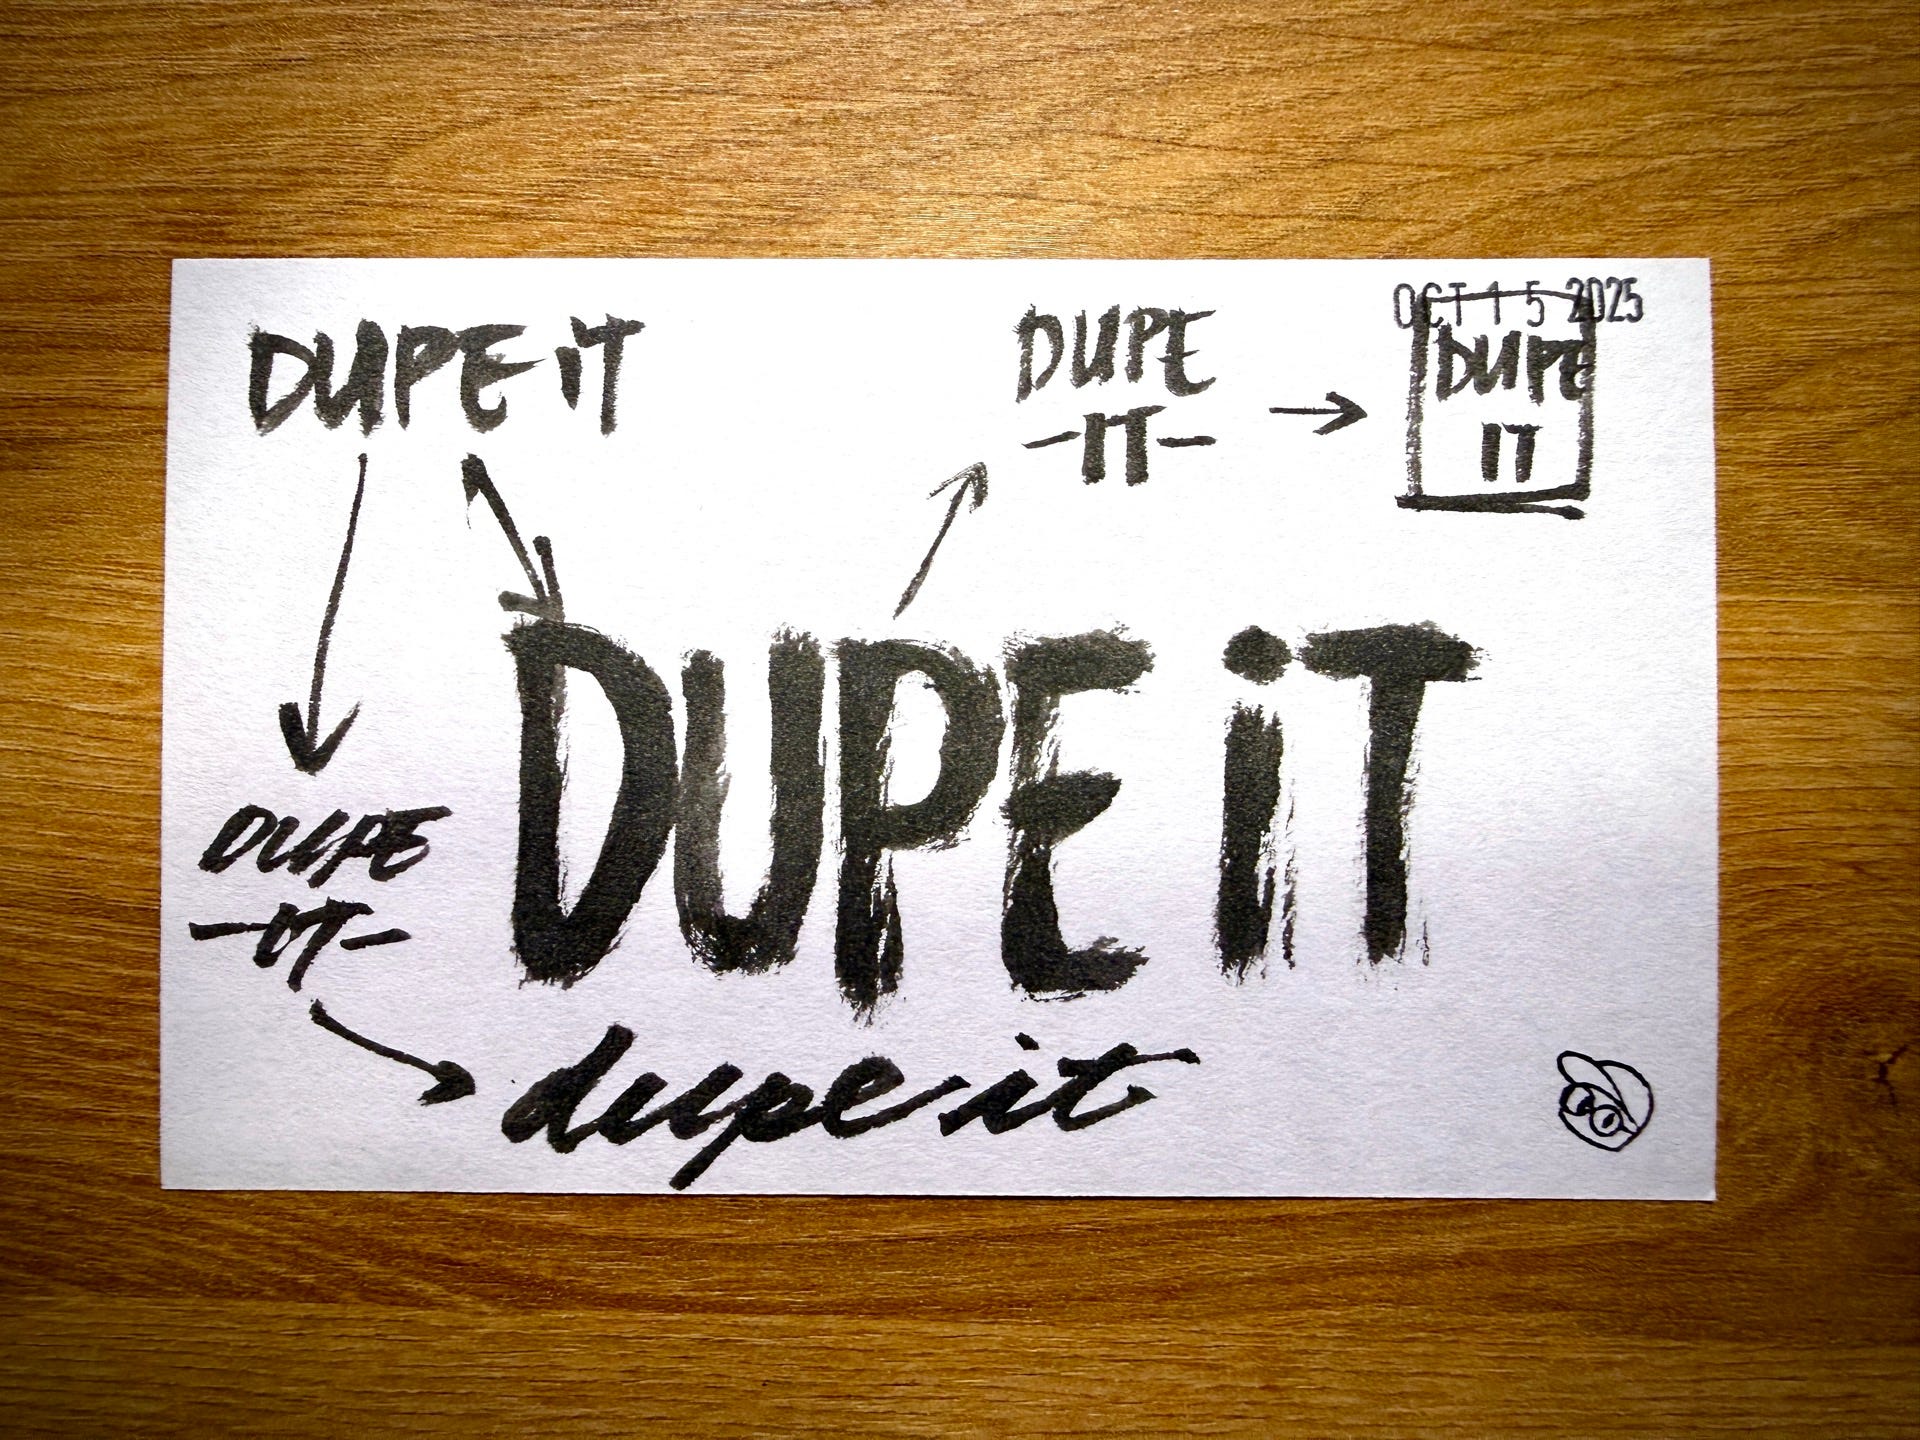 OCT 15 2025
DUPE iT
DUPE
-IT-
DUPE
IT
DUPE iT
DUPE
-IT-
dupe it